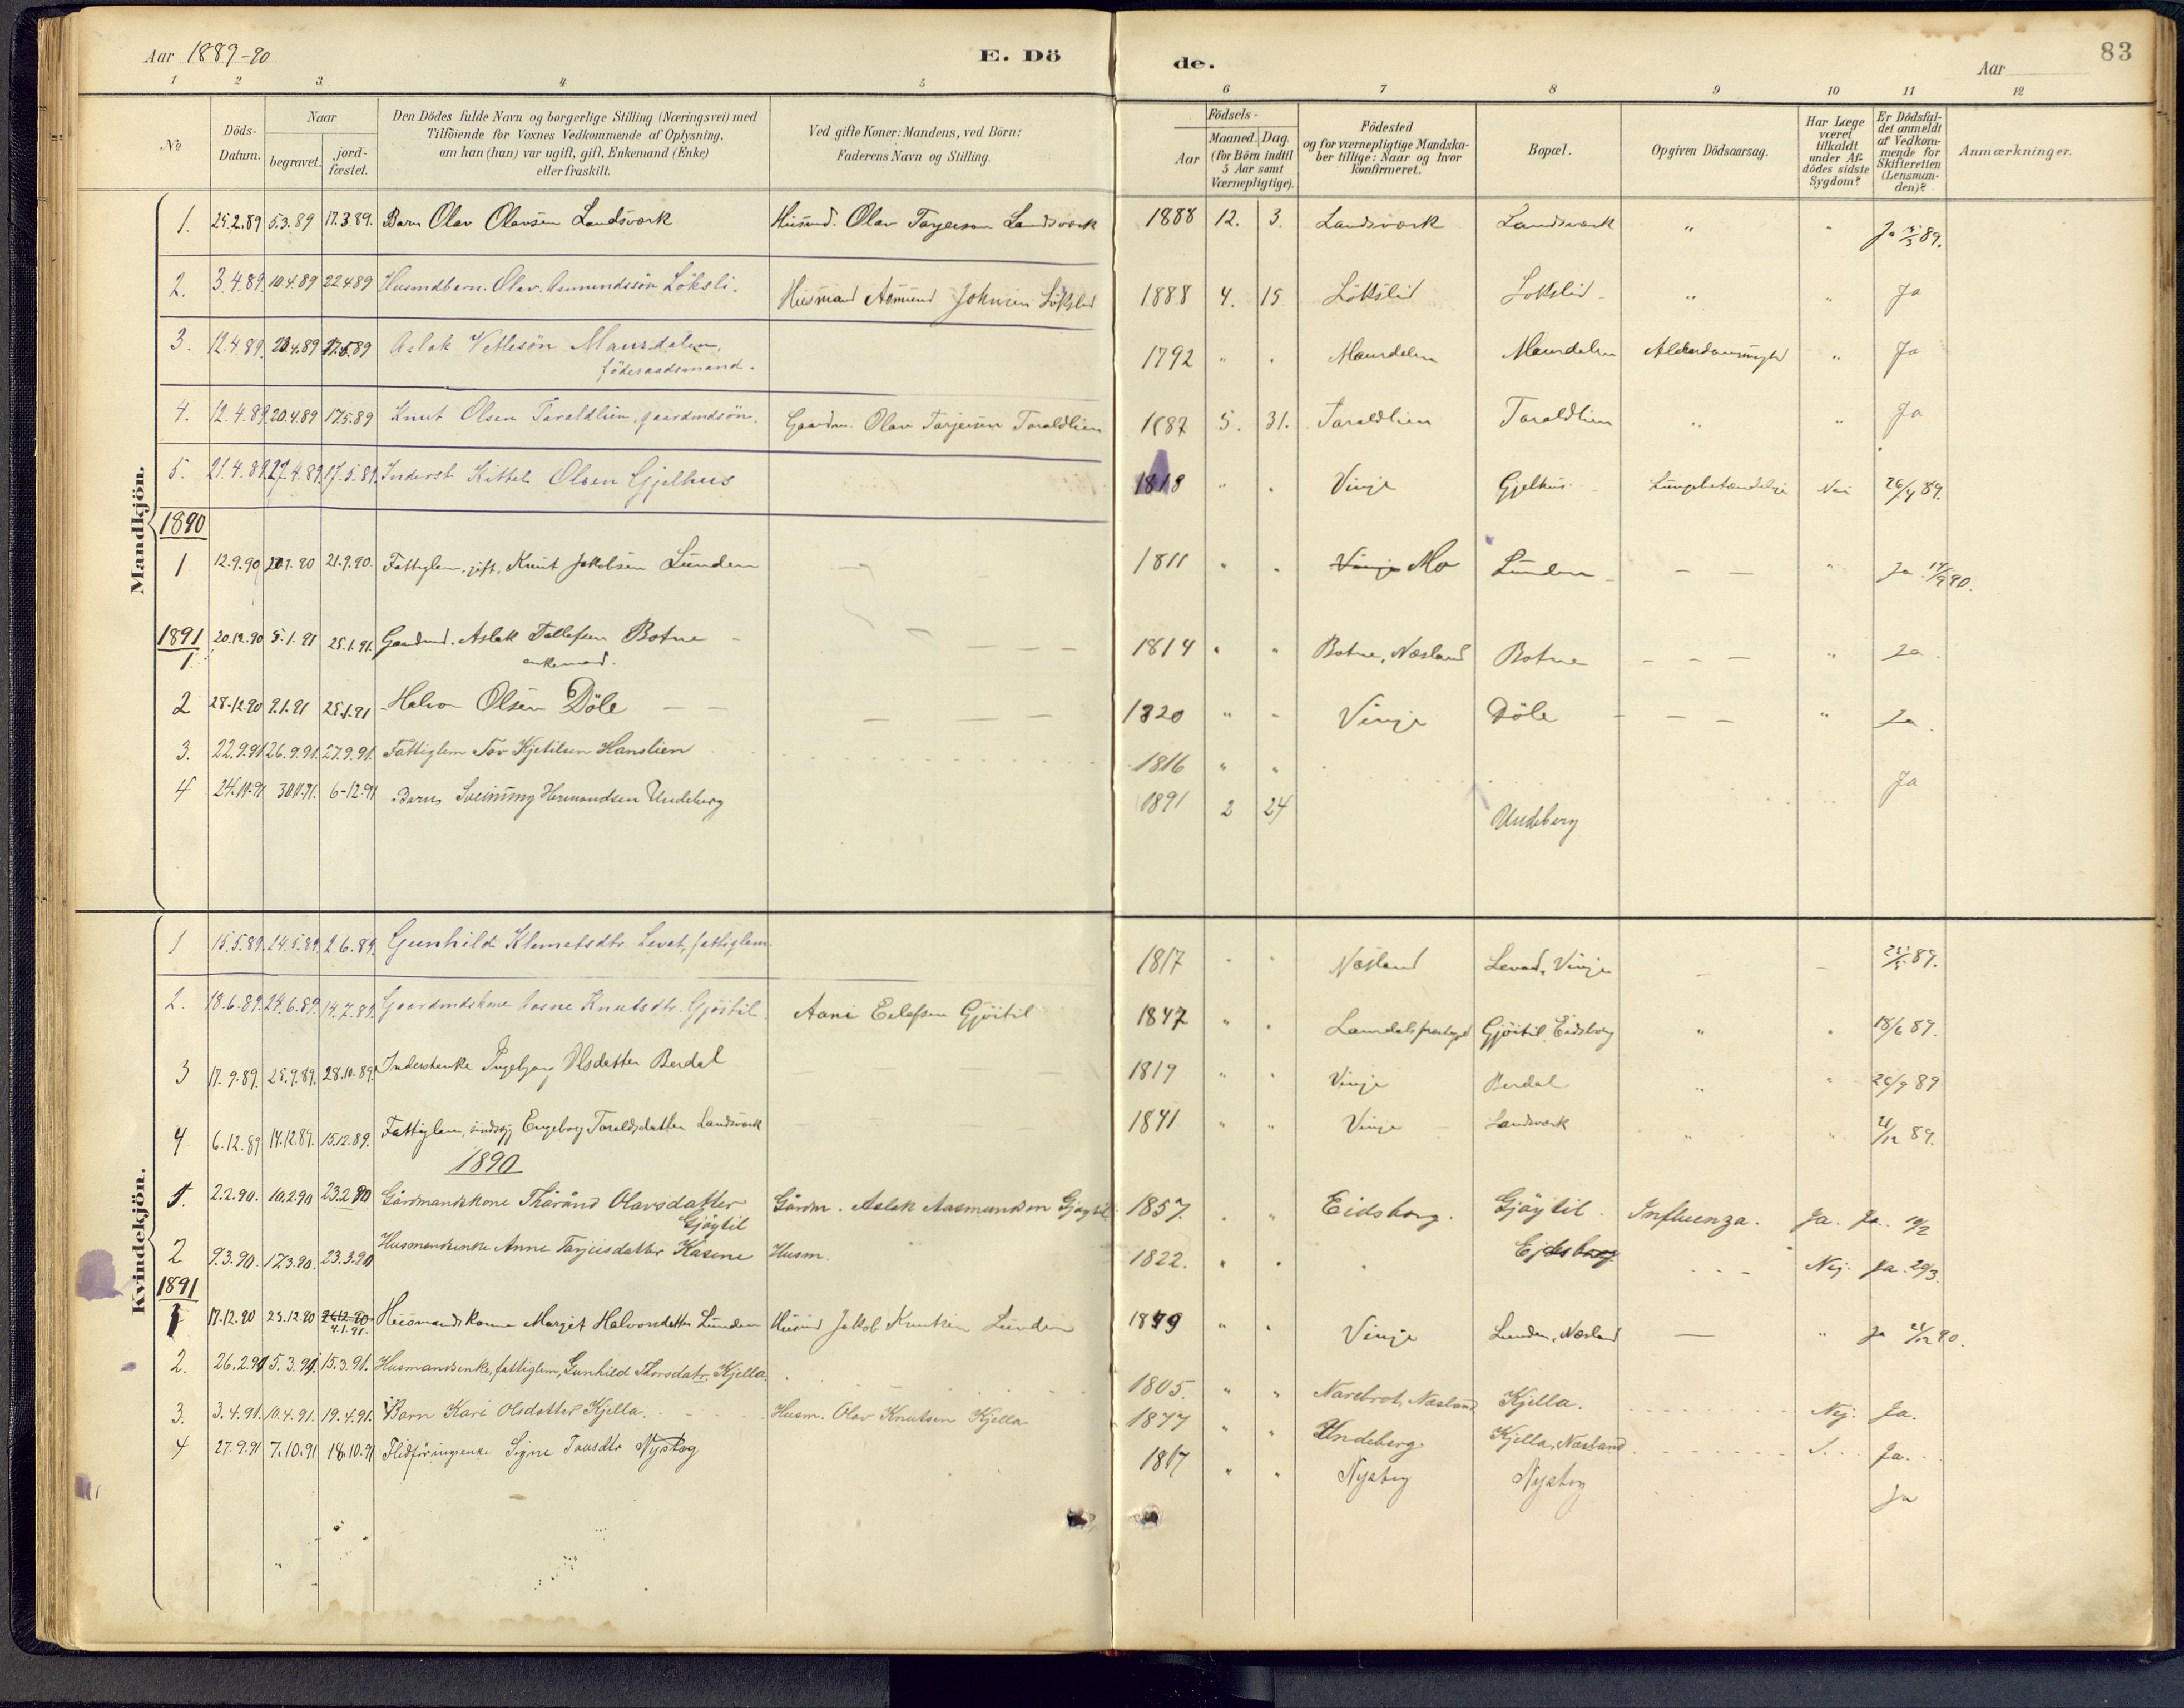 Aar 1889-90
E. Dö
de.
Aar
83
1 2 3 4 5 6 7 8 9 10 11 12
No
Döds-Datum.
Naar
begravet.
jord-fæstet.
Den Dödes fulde Navn og borgerlige Stilling (Næringsvei) med
Tilföiende for Voxnes Vedkommende af Oplysning,
om han (hun) var ugift, gift, Enkemand (Enke)
eller fraskilt.
Ved gifte Koner: Mandens, ved Börn:
Faderens Navn og Stilling.
Födsels-
Aar
Maaned. Dag.
(for Börn indtil
5 Aar samt
Værnepligtige).
Födested
og for værnepligtige Mandska-
ber tillige: Naar og hvor
konfirmeret.
Bopæl.
Opgiven Dödsaarsag.
Har Læge
været
tilkaldt
under Af-
dödes sidste
Sygdom?
Er Dödsfal-
det anmeldt
af Vedkom-
mende for
Skifteretten
(Lensman-
den)?
Anmærkninger.
Mandkjön.
1. 25.2.89 5.3.89 17.3.89. Barn Olav Olavsen Landsværk Husmd. Olav Tarjeisen Landsværk 1888 12. 3. Landsværk Landsværk " " Ja 89.
2. 3.4.89. 10.4.89 22.4.89 Husmdbarn. Olav Asmundssön Löksli. Husmand Asmund Johnsen Lökslid 1888 4. 15 Lökslid Lökslid " " Ja
3. 12.4.89. 20.4.89 17.5.89 Aslak Vetlesön Maurdalen,
föderaadsmand. 1792 " " Maurdalen Maurdalen " Ja
4. 12.4.89. 20.4.89 17.5.89 Knut Olsen Taraldlien, gaardmdsön. Gaardm. Olav Tarjeisen Taraldlien 1887 5. 31. Taraldlien Taraldlien " " Ja
5. 21.4.89. 27.4.89. 17.5.89. Inderst Kittel Olsen Gjelhus 1818 " " Vinje Gjelhus Lungebetændelse Nei 26/4 89.
1890
1 12.9.90 20.9.90 21.9.90. Fattiglem, gift, Knut Jakobsen Lunden 1811 " " Vinje Mo Lunden — — " Ja 14/9 90.
1891
1 20.12.90 5.1.91 25.1.91. Gaardmd. Aslak Tallefsen Botne
enkemand. — — — 1814 " " Botne, Næsland Botne — — — " Ja.
2 28.12.90 9.1.91 25.1.91 Halvor Olsen Döle — — — — — 1820 " " Vinje Döle — — — " Ja.
3. 22.9.91 26.9.91. 27.9.91. Fattiglem Tov Kjetilsen Hanslien 1816 " "
4 24.11.91 30.11.91. 6-12-91 Barn Sveinung Hermundsen Undeberg 1891 2 24 Undeberg Ja
Kvindekjön.
1 15.5.89. 24.5.89. 2.6.89. Gunhild Klemetsdtr. Levat, fattiglem 1817 " " Næsland Levad, Vinje 89.
2. 18.6.89. 24.6.89. 14.7.89. Gaardmdskone Aasne Knutsdtr. Gjöitil. Aani Eilefsen Gjöitil 1847 " " Gjöitil, Eidsborg " " 18/6 89.
3 17.9.89. 25.9.89. 28.10.89. Inderstenke Ingebjørg Olsdatter Berdal 1819 " " Vinje Berdal " " 26/9 89
4 6.12.89 14.12.89. 15.12.89. Fattiglem, sindssyg Engeborg Toraldsdatter Landsværk 1841 " " Vinje Landsværk " " 21/12 89.
1890
1. 2.2.90. 10.2.90 23.2.90 Gårdmandskone Thårånd Olavsdatter
Gjöytil Gårdm. Aslak Aasmundsen Gjøytil 1857. " " Eidsborg. Gjöytil. Influenza. Ja. Ja. 10/2
2 9.3.90. 17.3.90. 23.3.90 Husmandsenke Anne Tarjeisdatter Kasene Husm. 1822. " " Ejdsborg Nej. Ja. 20/3.
1891
1 17.12.90 25.12.90 26.12.90
4.1.91. Husmands kone Margit Halvorsdatter Lunden Husmd Jakob Knutsen Lunden 1849 " " Vinje Lunden, Næsland — " Ja 21/12 90.
2. 26.2.91 5.3.91. 15.3.91. Husmandsenke, fattiglem, Gunhild Thorsdatr. Kjella. 1805. " " Narebrot, Næsland Kjella. Nej. Ja.
3. 3.4.91. 10.4.91. 19.4.91. Barn Kari Olsdatter Kjella. Husm. Olav Knutsen Kjella 1877 " " Undeberg. Kjella, Næsland Ja.
4 27.9.91 7.10.91 18.10.91 Signe Tovsdtr Nystog 1817 " " Nystog Nystog Ja